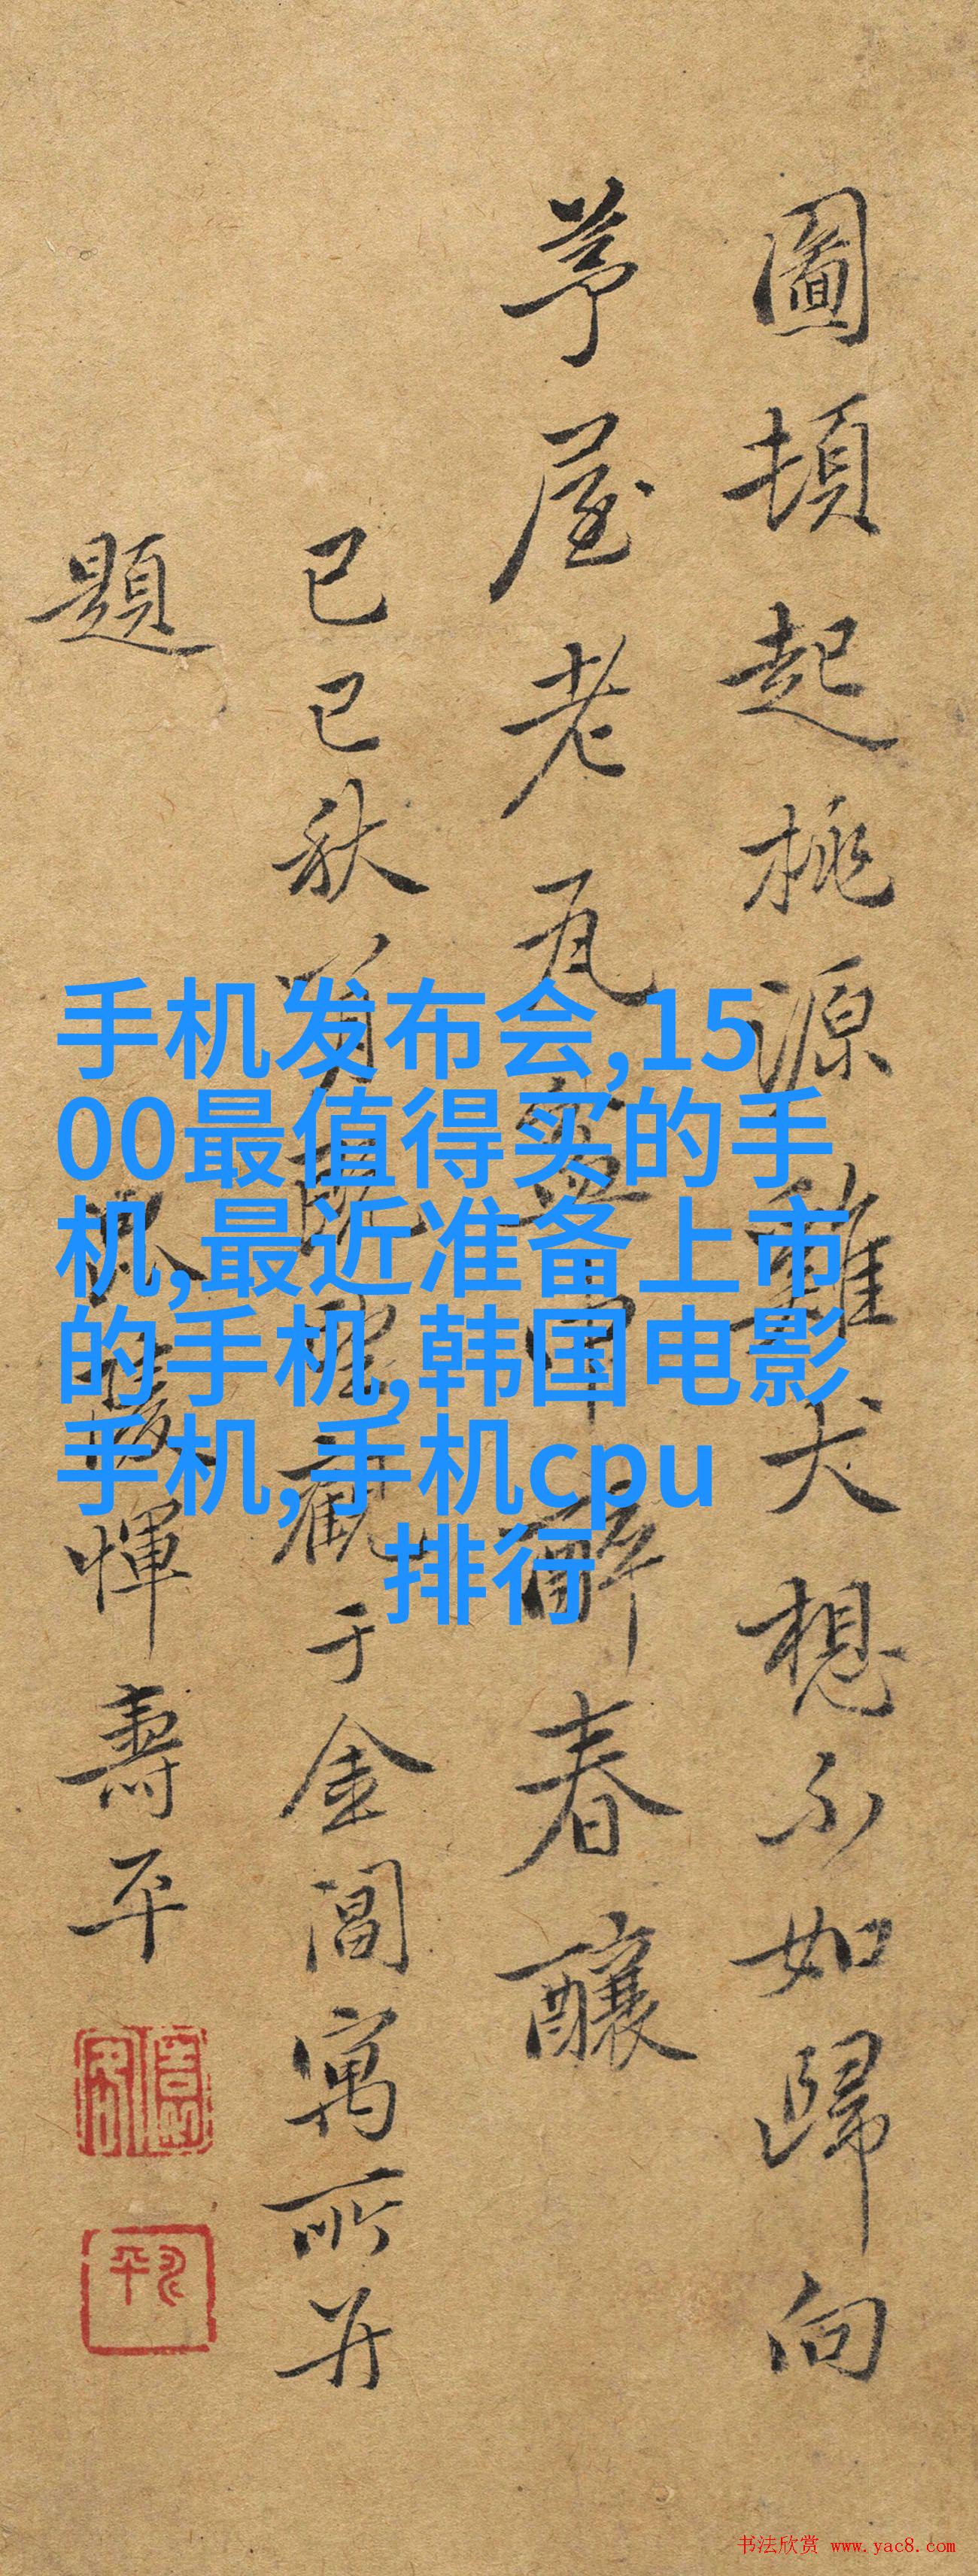 圖頓起桃源雞犬想不如歸向
茅屋老瓦盆中醉春釀
己巳秋
觀于金閶寓所并
題
惲壽平
手机发布会,15
00最值得买的手
机,最近准备上市
的手机,韩国电影
手机,手机cpu
排行
书法欣赏 www.yac8.com